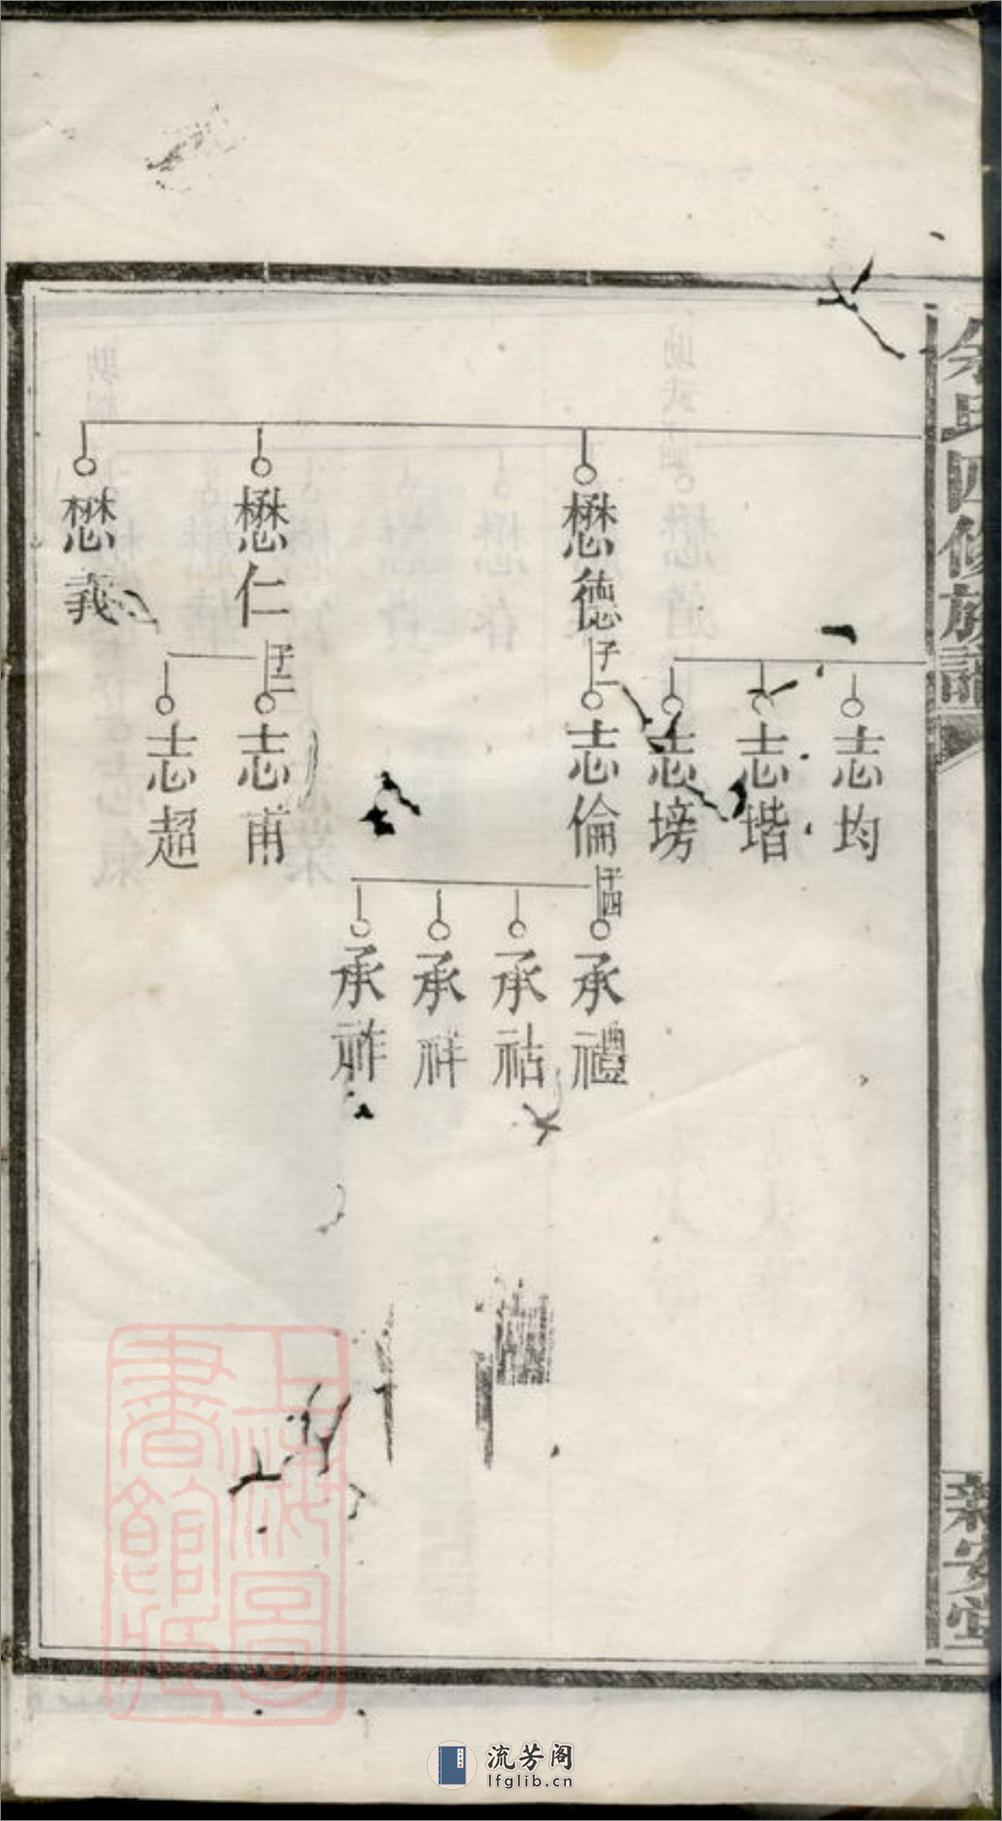 余氏四修族譜
新安堂
志均
志堦
志塝
懋德
子一
志倫
子四
承禮
承祜
承祥
承祚
懋仁
子二
志甫
志超
懋義
上海圖書館藏
流芳阁
lfglib.cn